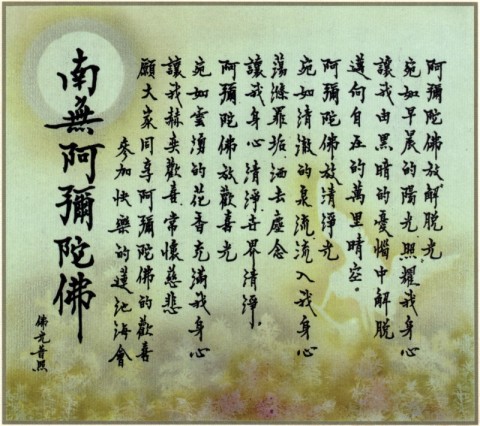 阿彌陀佛放解脫光
宛如早晨的陽光,照耀我身心
讓我由黑暗的憂惱中解脫
邁向自在的萬里晴空。
阿彌陀佛放清淨光
宛如清澈的泉流,流入我身心
蕩滌罪垢,洒去塵念
讓我身心清淨,世界清淨。
阿彌陀佛放歡喜光
宛如雲湧的花香充滿我身心
讓我赫奕歡喜常懷慈悲
願大家同享阿彌陀佛的歡喜
參加快樂的蓮池海會
南無阿彌陀佛
佛光普照